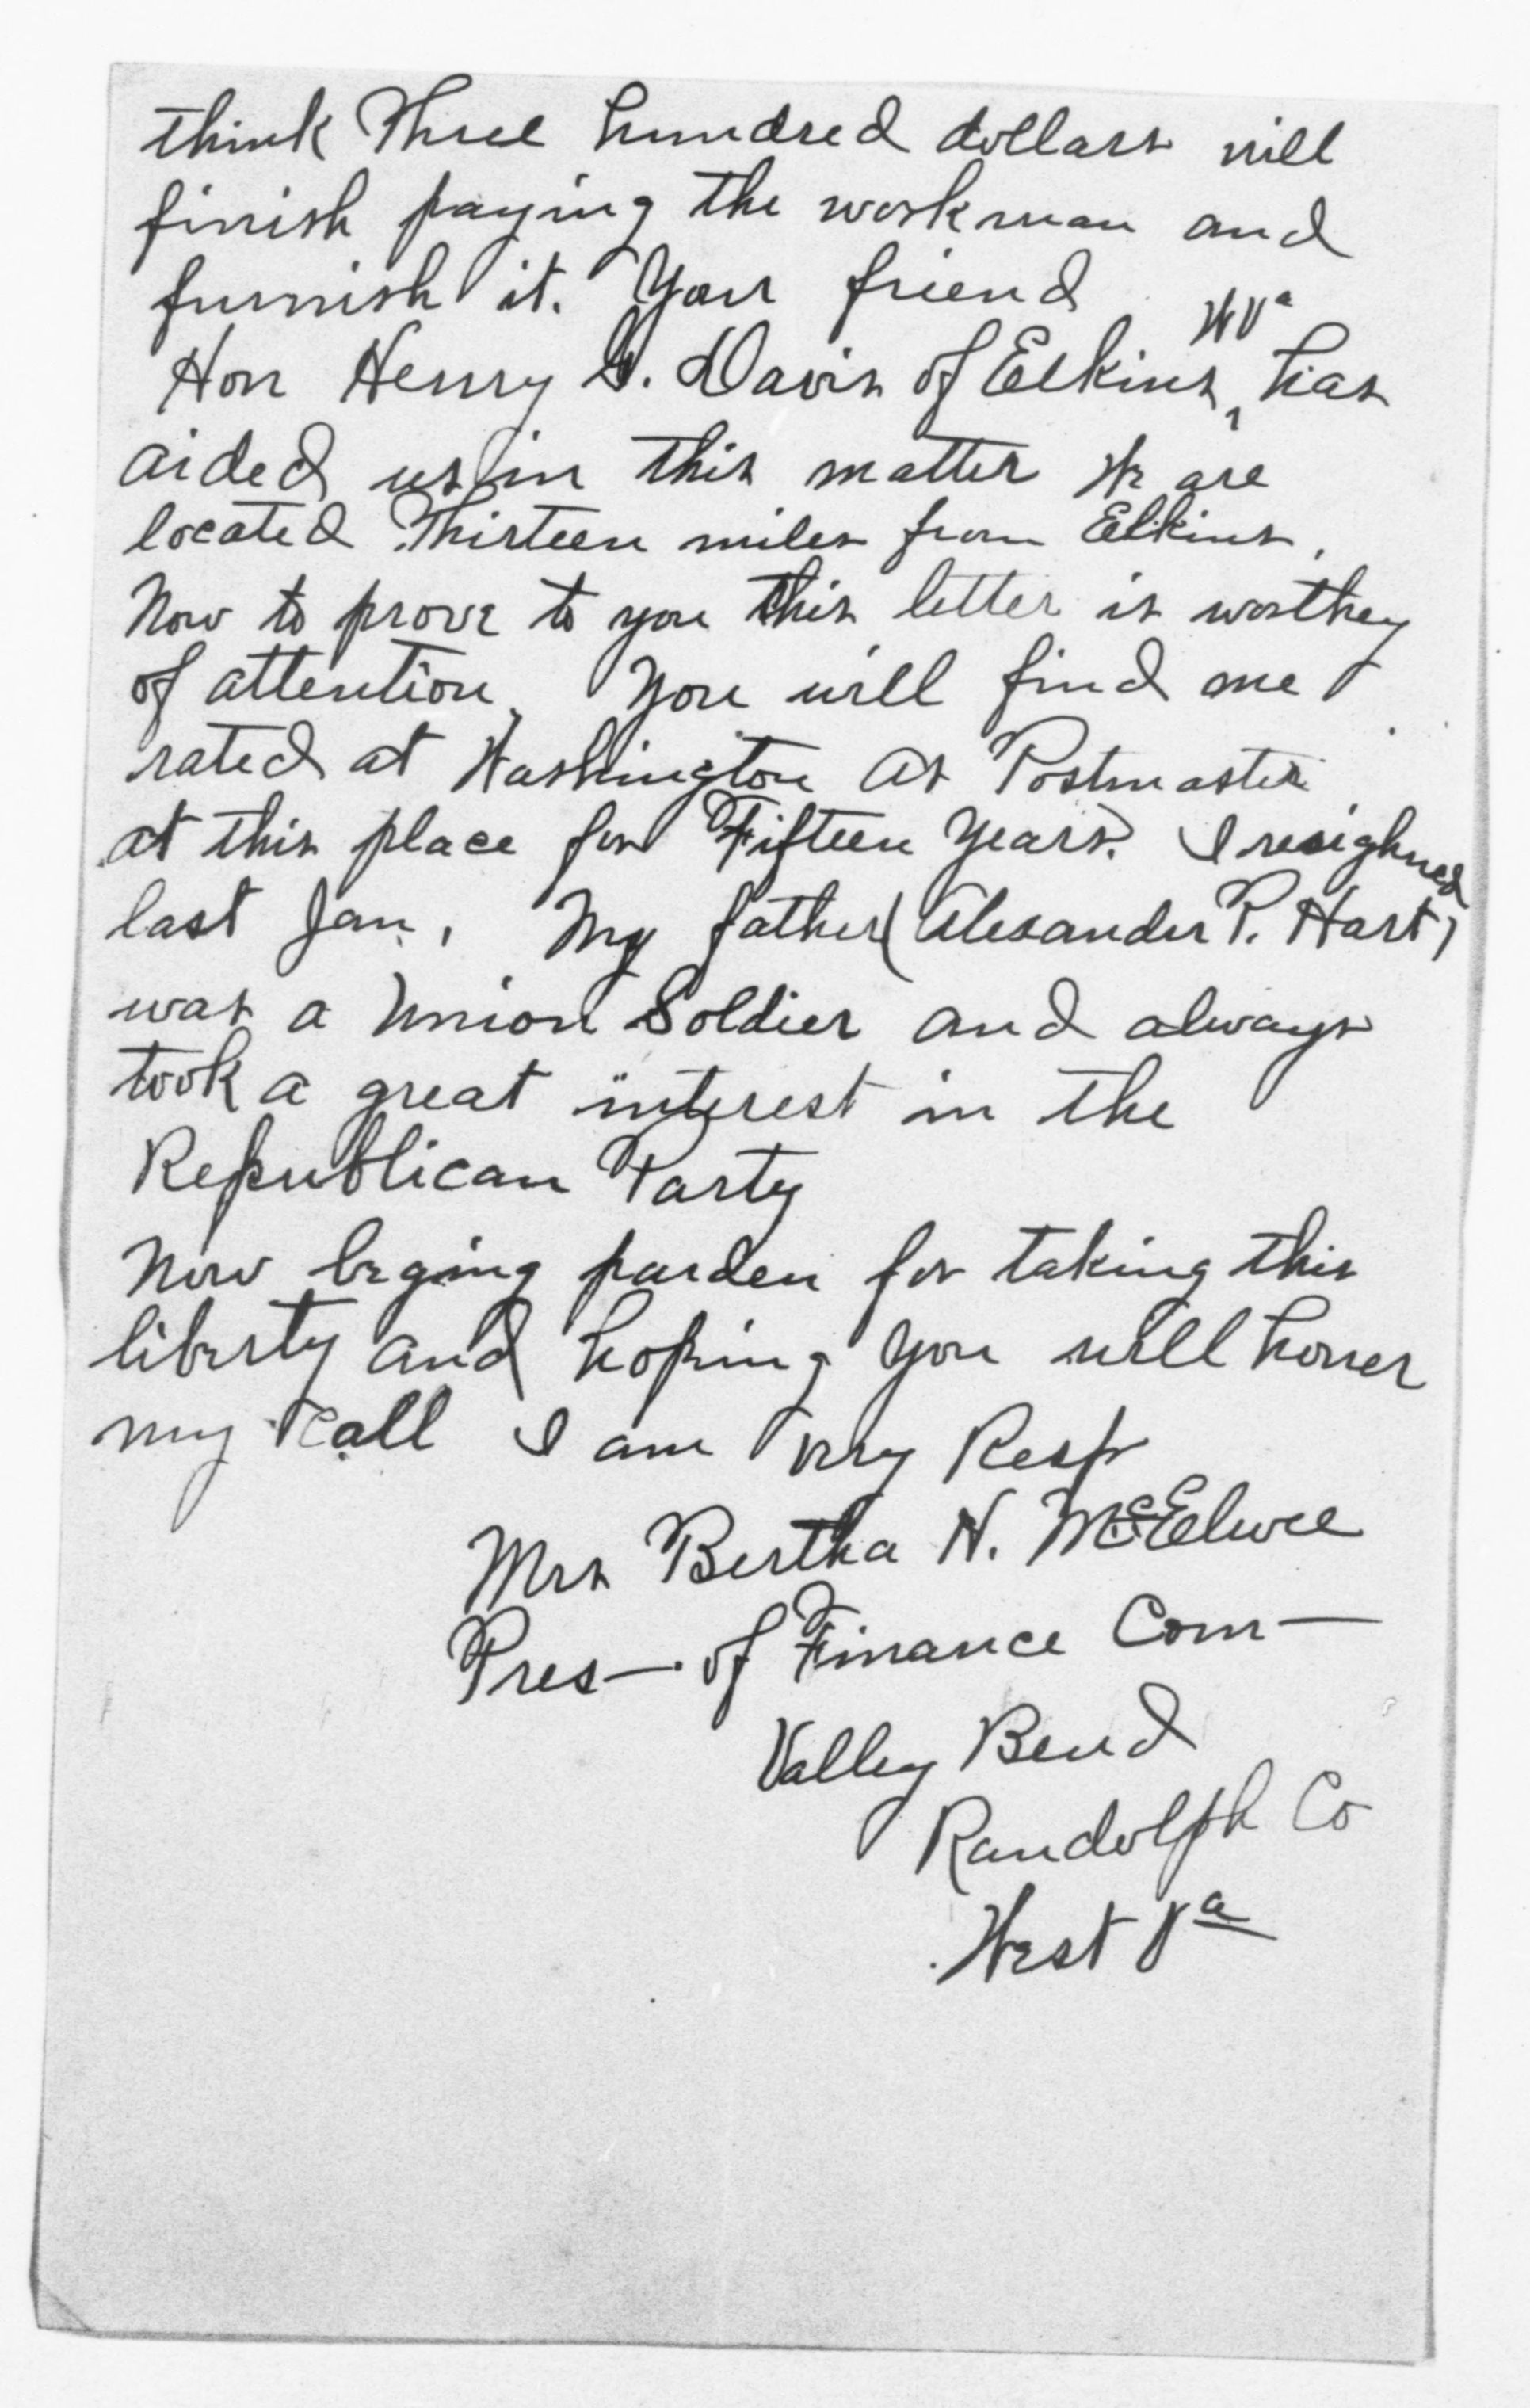 think Three hundred dollars will
finish paying the workman and
furnish it. Your friend
Hon Henry G. Davis of Elkins, W Va has
aided us in this matter We are
located Thirteen miles from Elkins.
Now to prove to you this letter is worthey
of attention, You will find me
rated at Washington as Postmaster
at this place for Fifteen years. I resighned
last Jan, My father (Alexander P. Hart)
was a Union Soldier and always
took a great interest in the
Republican Party
Now beging parden for taking this
liberty and hoping you will honer
my call I am very Resp
Mrs Bertha H. McElwee
Pres— of Finance Com—
Valley Bend
Randolph Co
West Va